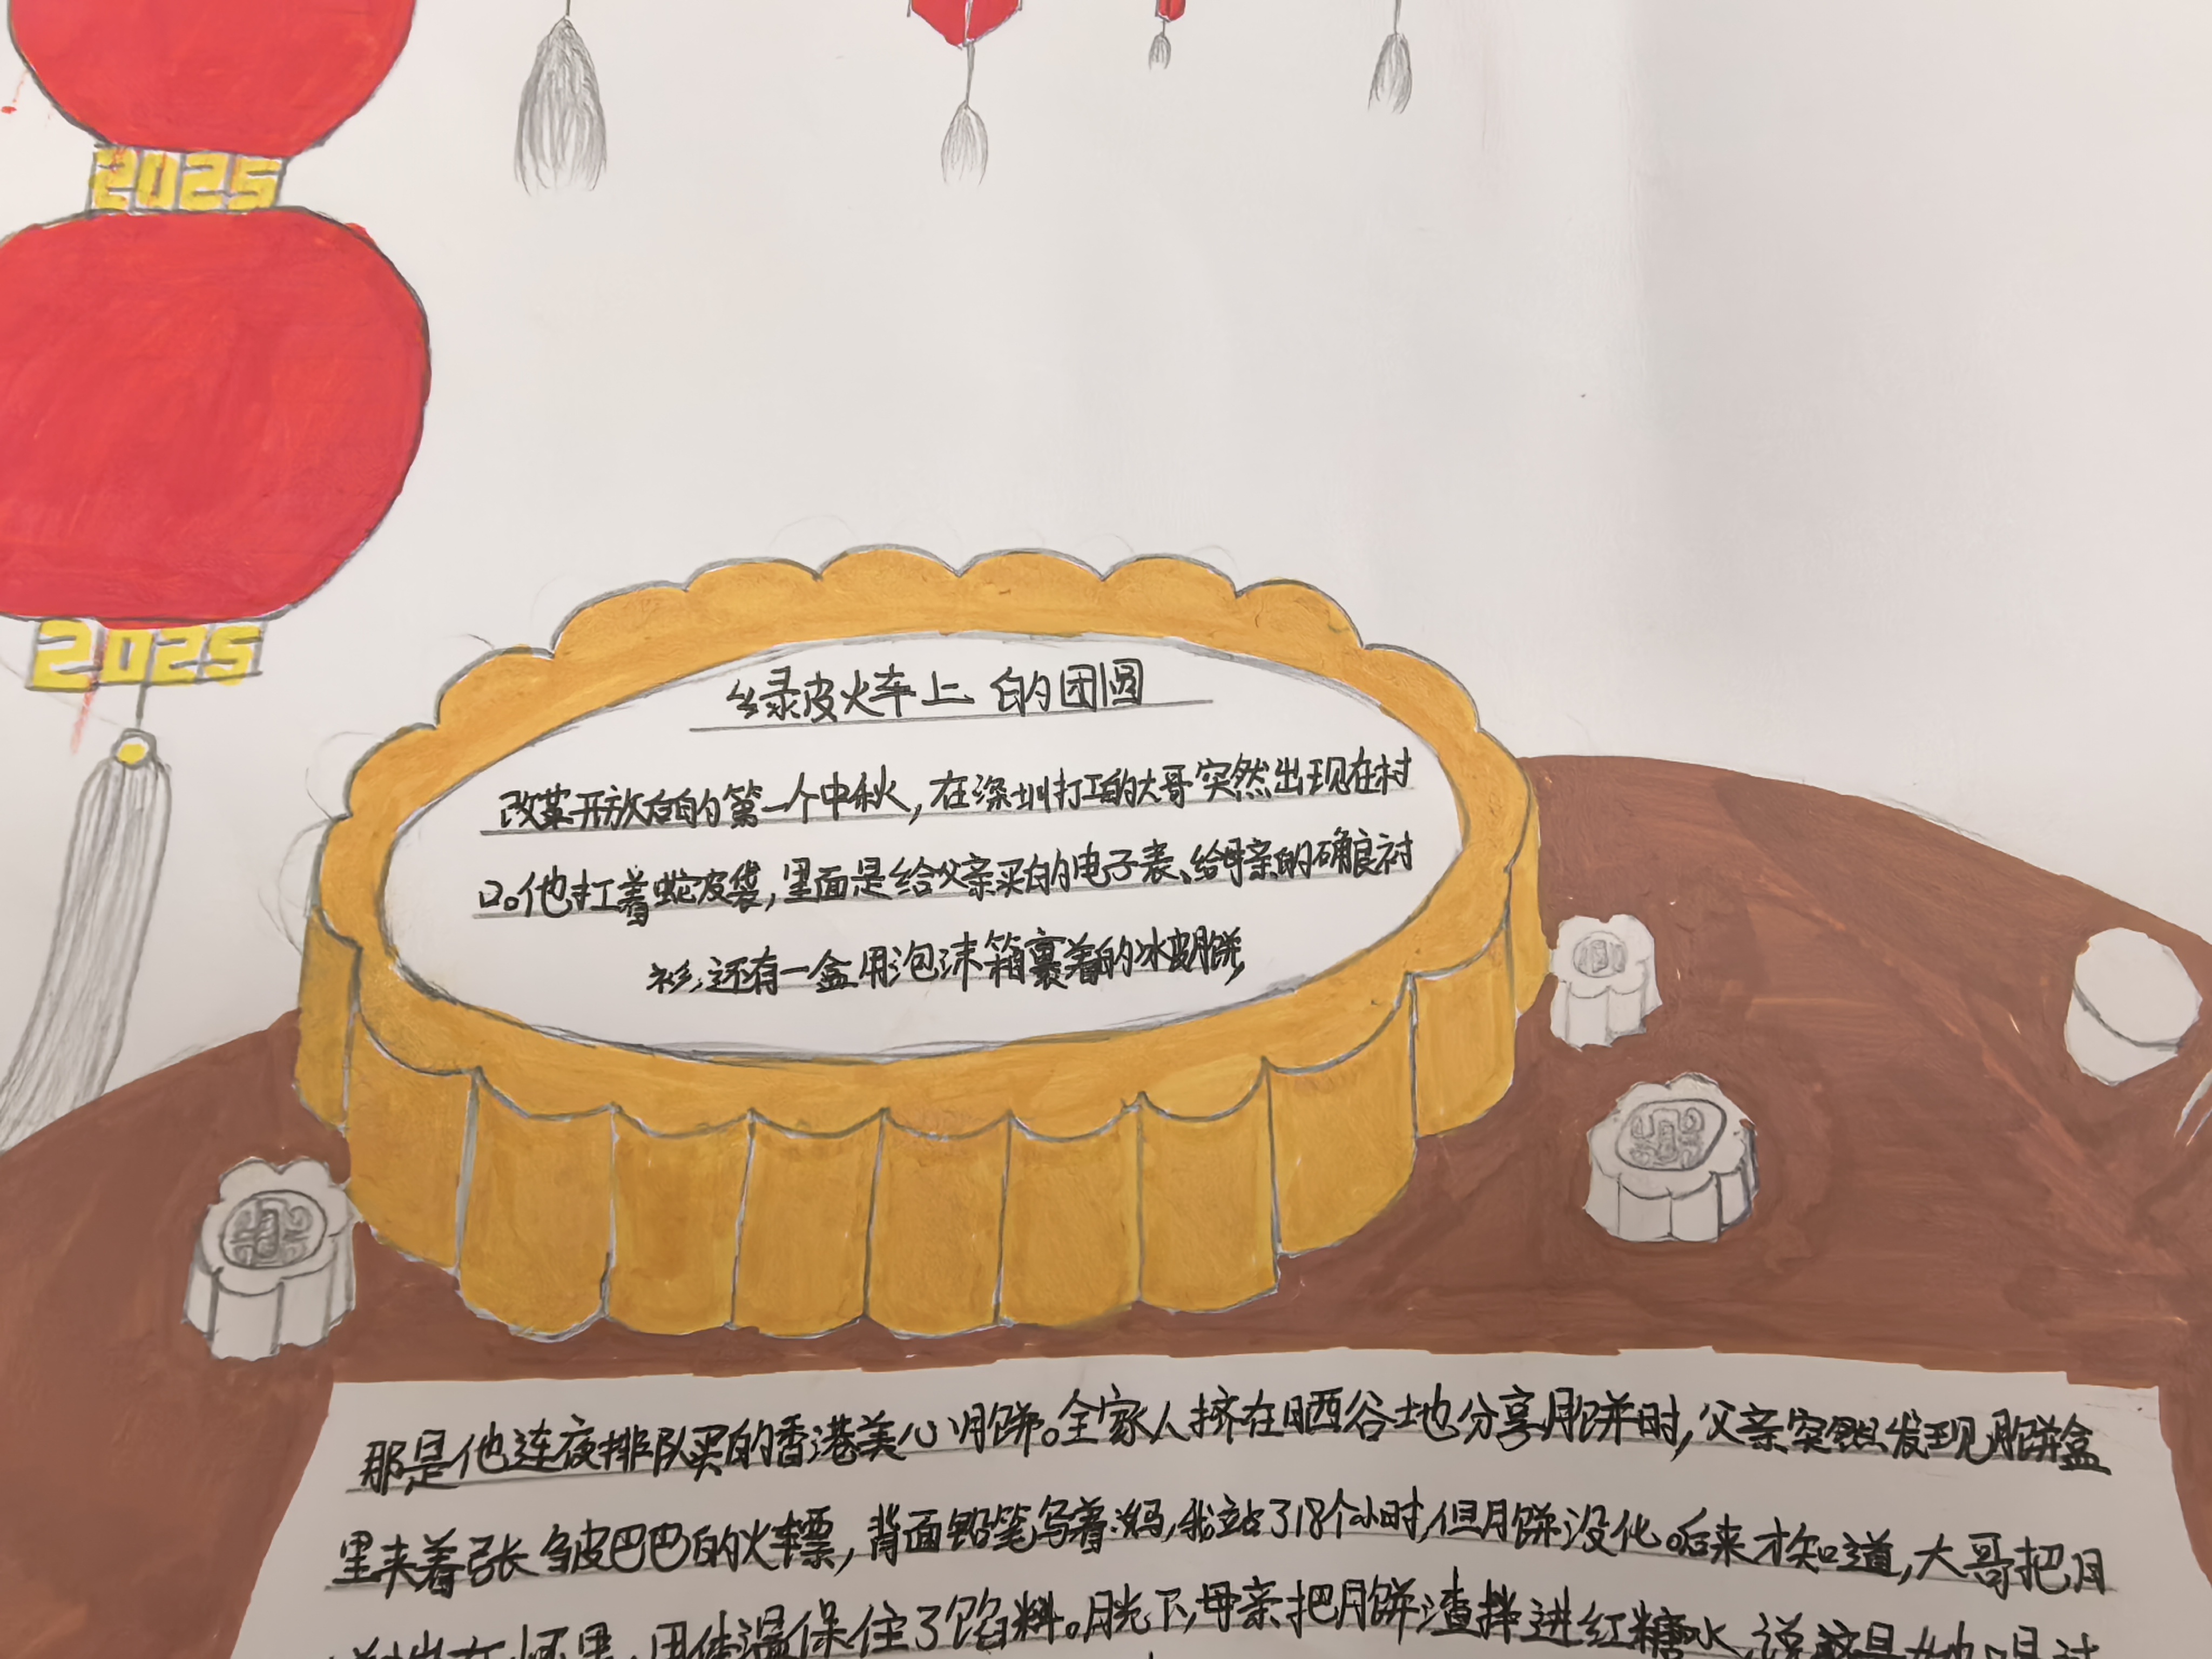 2025
2025
绿皮火车上的团圆
改革开放后的第一个中秋,在深圳打工的大哥突然出现在村
口。他扛着蛇皮袋,里面是给父亲买的电子表、给母亲的的确良衬
衫,还有一盒用泡沫箱裹着的冰皮月饼,
那是他连夜排队买的香港美心月饼。全家人挤在晒谷地分享月饼时,父亲突然发现月饼盒
里夹着张皱皮巴巴的火车票,背面铅笔写着:妈,我站了18个小时,但月饼没化。后来才知道,大哥把月
在怀里,用体温保住了馅料。月光下,母亲把月饼渣拌进红糖水,说这是她喝过